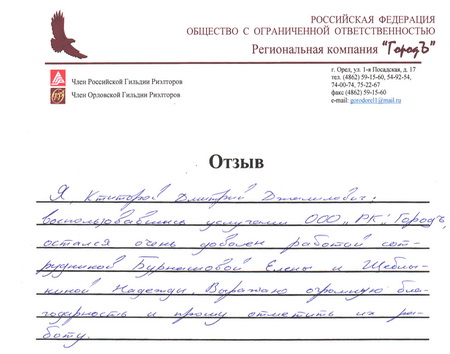 РОССИЙСКАЯ ФЕДЕРАЦИЯ
ОБЩЕСТВО С ОГРАНИЧЕННОЙ ОТВЕТСТВЕННОСТЬЮ
Региональная компания "ГородЪ"
Член Российской Гильдии Риэлторов
Член Орловской Гильдии Риэлторов
г. Орел, ул. 1-я Посадская, д. 17
тел. (4862) 59-15-60, 54-92-54,
74-00-74, 75-22-67
факс (4862) 59-15-60
e-mail: gorodorel1@mail.ru
Отзыв
Я, Дмитрий
воспользовавшись услугами ООО „РК„ Городъ,
остался очень доволен работой сот-
рудников Бурнашовой Елены и Шеблы-
киной Надежды. Выражаю огромную бла-
годарность и прошу отметить их ра-
боту.